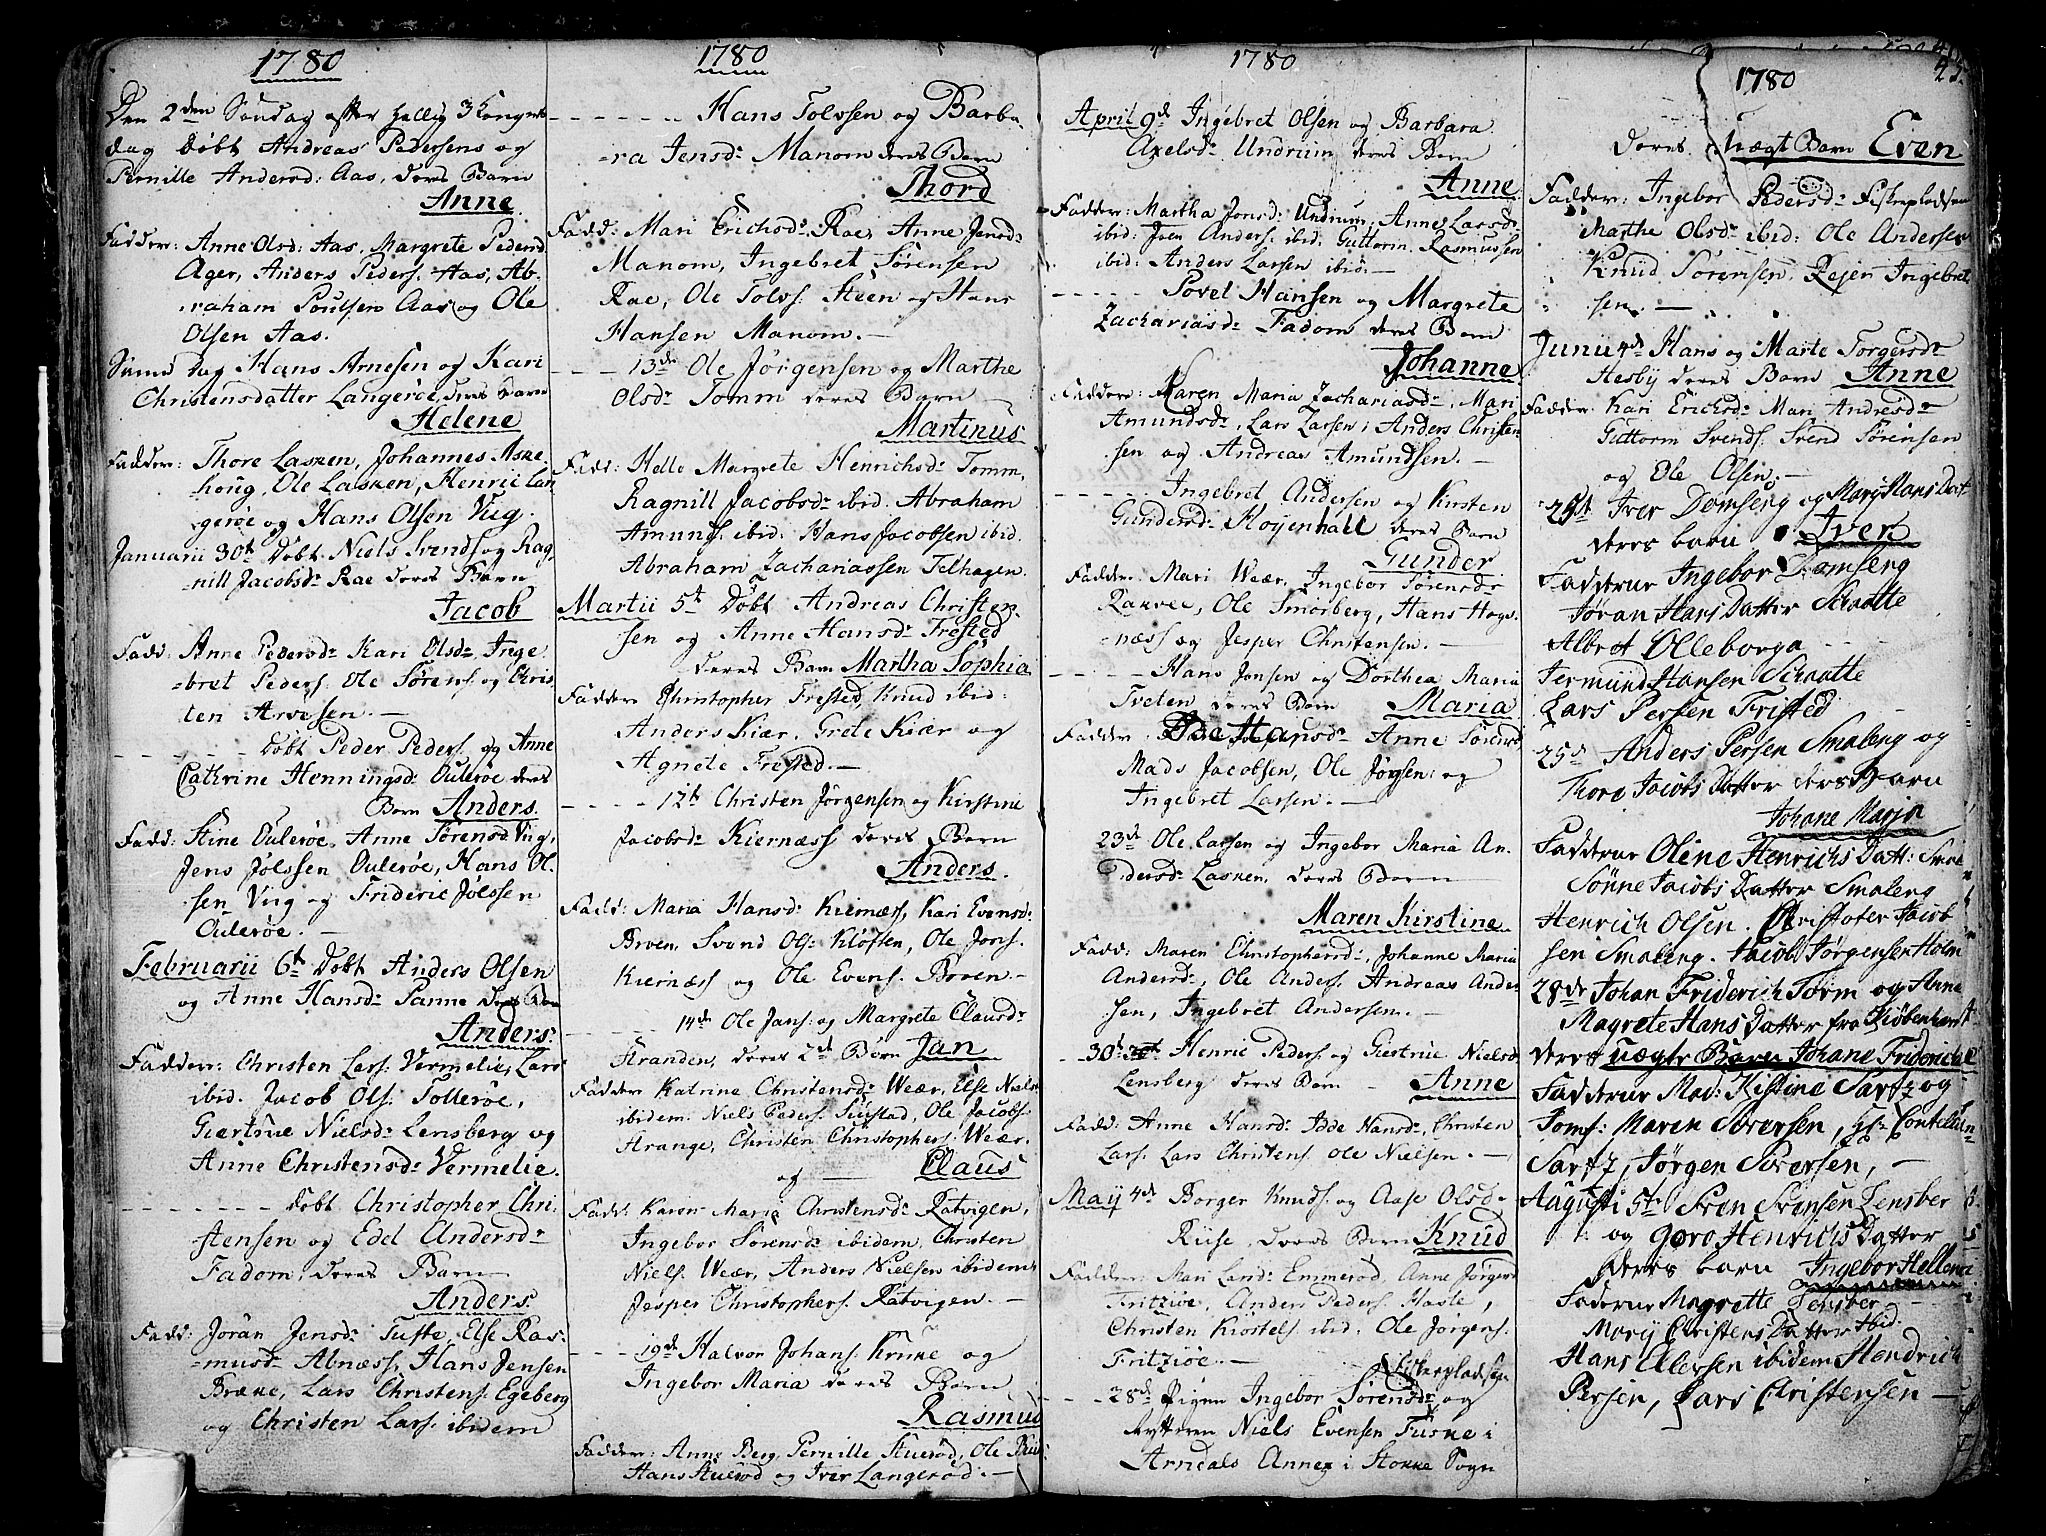 1780
Den 2den Søndag efter hellig 3 Konger
dag Døbt Andreas Pedersens og
Pernille Andersd: Aas, deres Barn
Anne
Fadder: Anne Olsd: Aas, Margrete Pedersd
Ager, Anders Peders: Aas, Ab-
raham Poulsen Aas og Ole
Olsen Aas.
Samme dag Hans Arnesen og Kari
Christensdatter Langeröe, deres Barn
Helene
Fadder: Thore Lasken, Johannes Aske
houg, Ole Lasken, Henric Lan
geröe og Hans Olsen Viig.
Januarii 30t Døbt Niels Svends: og Rag-
nill Jacobsd: Rae deres Barn
Jacob
Fadd: Anne Pedersd: Kari Olsd: Inge
bret Peders: Ole Sörens: og Chris
ten Arvesen.
Døbt Peder Peders: og Anne
Cathrine Henningsd: Oulerøe deres
Barn Anders.
Fadd: Stine Oulerøe, Anne Sörensd Viig,
Jens Jølssen Oulerøe, Hans Ol-
sen Viig og Frideric Jølssen
Oulerøe.
Februarii 6t Døbt Anders Olsen
og Anne Hansd: Sanne deres Barn
Anders.
Fadder: Christen Lars: Vermelie, Lars
ibid. Jacob Ols: Tolleröe,
Giertrue Nielsd: Lensberg og
Anne Christensd: Vermelie.
døbt Christopher Chri-
stensen og Edel Andersd:
Fadom, deres Barn
Anders.
Fadd: Joran Jensd: Tufte, Else Ras-
musd: Abnæss, Hans Jensen
Bræke, Lars Christens: Egeberg
og Christen Lars: ibidem
1780
Hans Tolvsen og Barba
ra Jensd: Manom deres Barn
Thord
Fadd: Mari Erichsd: Rae, Anne Jensd:
Manom, Ingebret Sörensen
Rae, Ole Tolvs: Steen og Hans
Hansen Manom.
13de Ole Jörgensen og Marthe
Olsd: Tomm deres Barn
Martinus
Fadd: Helle Margrete Henrichsd: Tomm,
Ragnill Jacobsd: ibid. Abraham
Amunds: ibid: Hans Jacobsen ibid.
Abraham Zachariassen Telhagen.
Martii 5t Døbt Andreas Christen-
sen og Anne Hansd: Frested
deres Barn Martha Sophia
Fadder Christopher Frested, Knud ibid:
Anders Kiær, Grete Kiær og
Agnete Frested.
12t Christen Jörgensen og Kirstine
Jacobsd: Kiernæss deres Barn
Anders.
Fadd: Maria Hansd: Kiernæss, Kari Evensd:
Broen, Svend Ols: Klöften, Ole Jons:
Kiernæss og Ole Evens: Broen
14de Ole Jans: og Margrete Clausd:
Stranden, deres 2de Børn Jan
Fadder Katrine Christensd: Weær, Else Niels:
ibidem: Niels Peders: Siustad, Ole Jacobs:
Strange, Christen Christophers: Weær.
og Claus
Fadd: Karen Maria Christensd: Ratvigen,
Ingebor Sörensd: ibidem, Christen
Niels: Weær, Anders Nielsen ibidem,
Jesper Christophers: Ratvigen.
19de Halvor Johans: Kruke og
Ingebor Maria deres Barn
Rasmus
Fadder: Anne Berg, Pernille Stueröd, Ole
Hans Stueröd og Iver Langeröd.
1780
April 9d Ingebret Olsen og Barbara
Axelsd: Undrum deres Barn
Anne.
Fadder: Martha Jonsd: Undrum, Anne Larsd:
ibid: Joen Anders: ibid: Guttorm Rasmussen
ibid: Anders Larsen ibid:
Povel Hansen og Margrete
Zachariasd: Fadom deres Barn
Johanne
Fadder: Karen Maria Zachariasd:, Mari
Amundsd:, Lars Larsen, Anders Christen
sen og Andreas Amundsen.
Ingebret Andersen og Kirsten
Gundersd: Høyenhall deres Barn
Gunder
Fadder: Mari Weær, Ingebor Sörensd:
Rakvee, Ole Smörberg, Hans Hogs
næss og Jesper Christensen.
Hans Jonsen og Dorthea Maria
Tveten deres Barn Maria
Fadder: Hansd: Anne Sörensd
Mads Jacobsen, Ole Jörgsen: og
Ingebret Larsen.
23de Ole Larsen og Ingebor Maria An
dersd: Lasken, deres Barn
Maren Kirstine
Fadd: Maren Christophersd:, Johanne Maria
Andersd:, Ole Anders: Andreas Ander
sen, Ingebret Andersen.
30d Henric Peders: og Giertrue Nielsd:
Lensberg deres Barn Anne
Fadd: Anne Hansd: Idde Hansd:, Christen
Lars: Lars Christens: Ole Nielsen.
May 4d Borger Knuds: og Aase Olsd:
Riise, deres Barn Knud
Fadder: Mari Land: Emmeröd, Anne Jörgensd
Fritziöe Anders Peders: Hasle,
Christen Kiostels: ibid. Ole Jorgens:
Fritziöe.
Fiskerpladsen
28d Pigen Ingebor Sörensd: og
Rytteren Niels Evensen Fuske i
Arndals Annex i Stokke Sogn
1780
deres uægt Barn Even
Fadder: Ingebor Pedersd: Fiskepladsen
Marthe Olsd: ibid: Ole Andersen
Knud Sörensen, Rejer Ingebret
sen.
Junii 4d Hans og Marte Torgersd:
Hesby deres Barn Anne
Fadder: Kari Ericksd: Mari Andresd:
Guttorm Svends: Svend Sörensen
og Ole Olsen.
25t Iver Domberg og Mary Hans Dat
deres barn Iver
Faddrur Ingebor Domberg
Jøran Hans Datter Schaatte
Albret Olleborga
Jermund Hansen Schaatte
Lars Persen Fristed
25d Anders Persen Smaleng og
Thore Jacobs Datter deres Barn
Johane Maria
Faddrur Olene Henrichs Datt: Smale
Sönne Jacobs Datter Smaleng
Henrich Olsen. Christofer Jacob
sen Smaleng. Jacob Jørgensen Holm
28de Johan Friderich Torm og Anne
Magrete Hans Datter fra Kiøbenhavn
deres uægte Barn Johane Friderica
Faddrur Mad: Kistine Sartz og
Jomf: Maren Sørensen, Hr: Contelleun
Sartz, Jørgen Sørensen,
Augusti 5te Sven Svensen Lensber
og Goro Henrichs Datter
deres barn Ingebor Hellena
Faderur Magrette Lensber
Mary Christens Datter Ibid.
Hans Olersen ibidem Hendrich
Persen, Lars Christensen